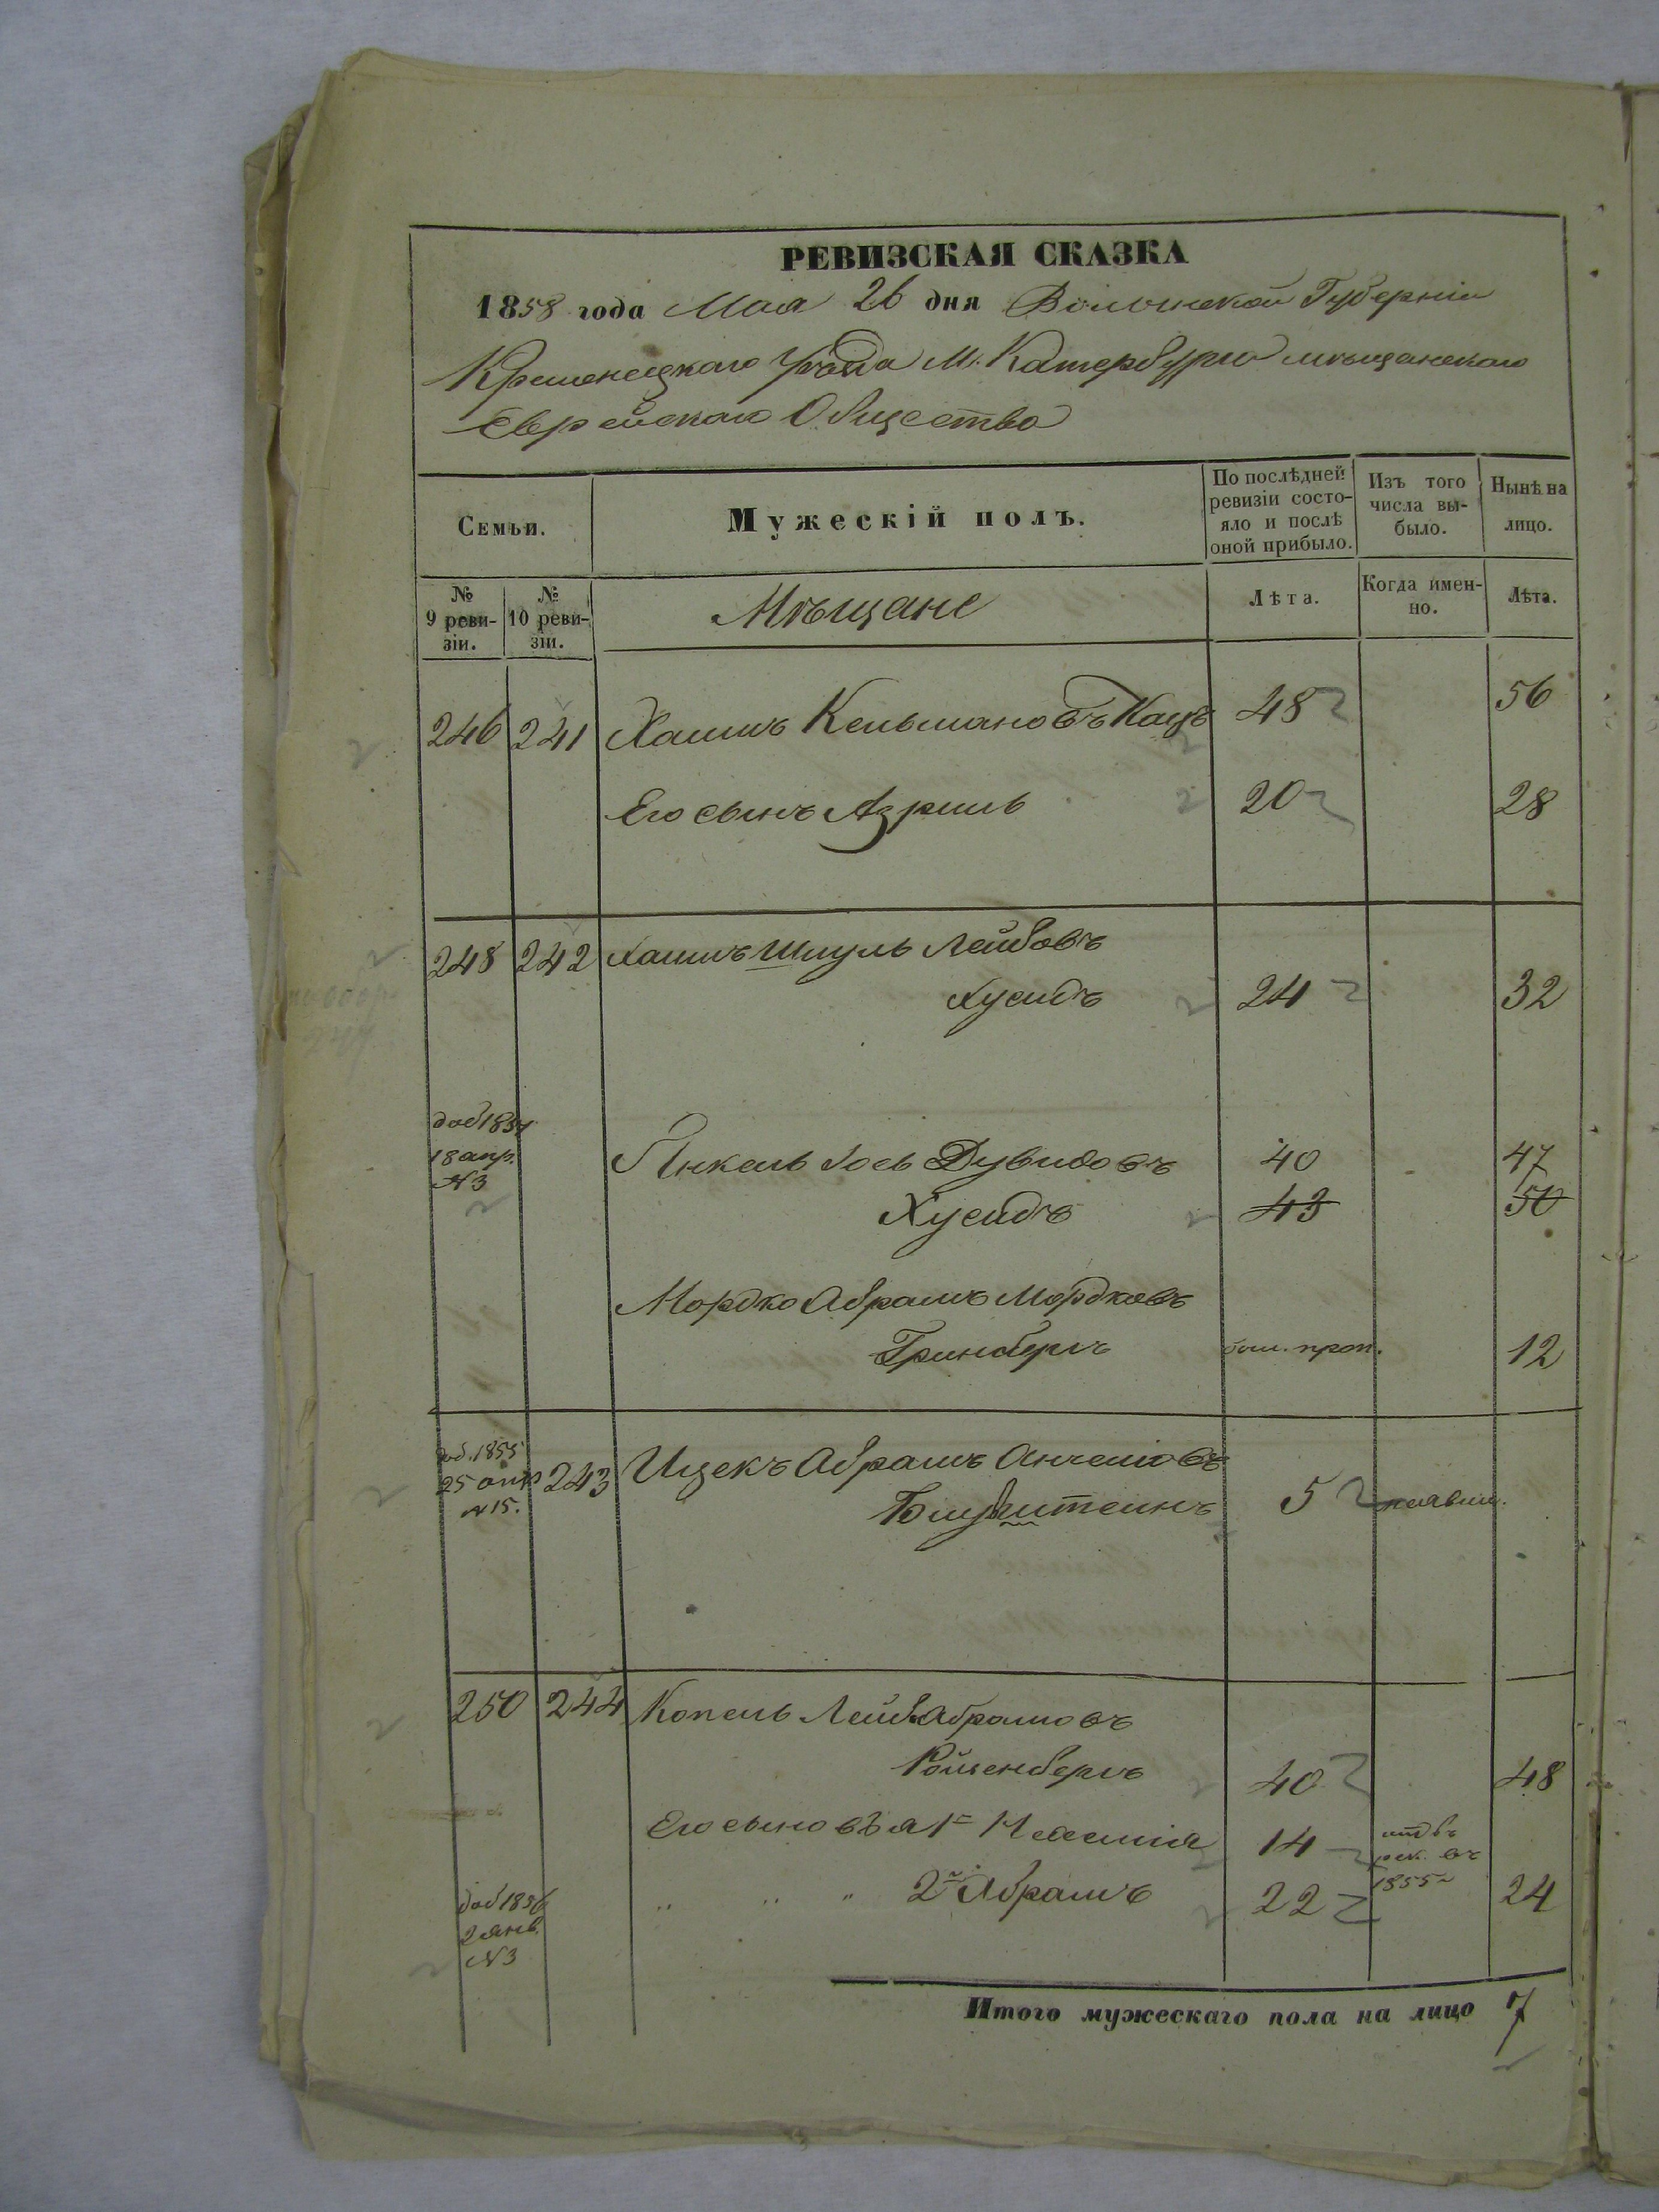 РЕВИЗСКАЯ СКАЗКА
1858 года Мая 26 дня Волынской Губерніи
Кременецкаго Уѣзда М. Катербурга мѣщанскаго
Еврейскаго Общества
Семьи.
Мужескій полъ.
По послѣдней ревизіи состояло и послѣ оной прибыло.
Изъ того числа выбыло.
Нынѣ на лицо.
№ 9 ревизіи.
№ 10 ревизіи.
Мѣщане
Лѣта.
Когда именно.
Лѣта.
246 241 Хаимъ Кельмановъ Кацъ 48 56
Его сынъ Азриль 20 28
248 242 Хаимъ Шмуль Лейбовъ
Хусидъ 24 32
доб 1851
18 апр.
N 3
Янкель Іось Дувидовъ 40 47
Хусидъ 43 50
Мордко Абрамъ Мордковъ
Гринбергъ был. проп. 12
доб. 1855
25 апр
N 15.
243 Ицекъ Абрамъ Анчеліовъ
Блувштейнъ 5 неявил.
250 244 Копель Лейб Абрамовъ
Ройзенбергъ 40 48
Его сыновья 1й 14
рек. въ
1855
" " " 2й Абрамъ 22 24
доб 1856
2 янв.
N 3
Итого мужескаго пола на лицо 7